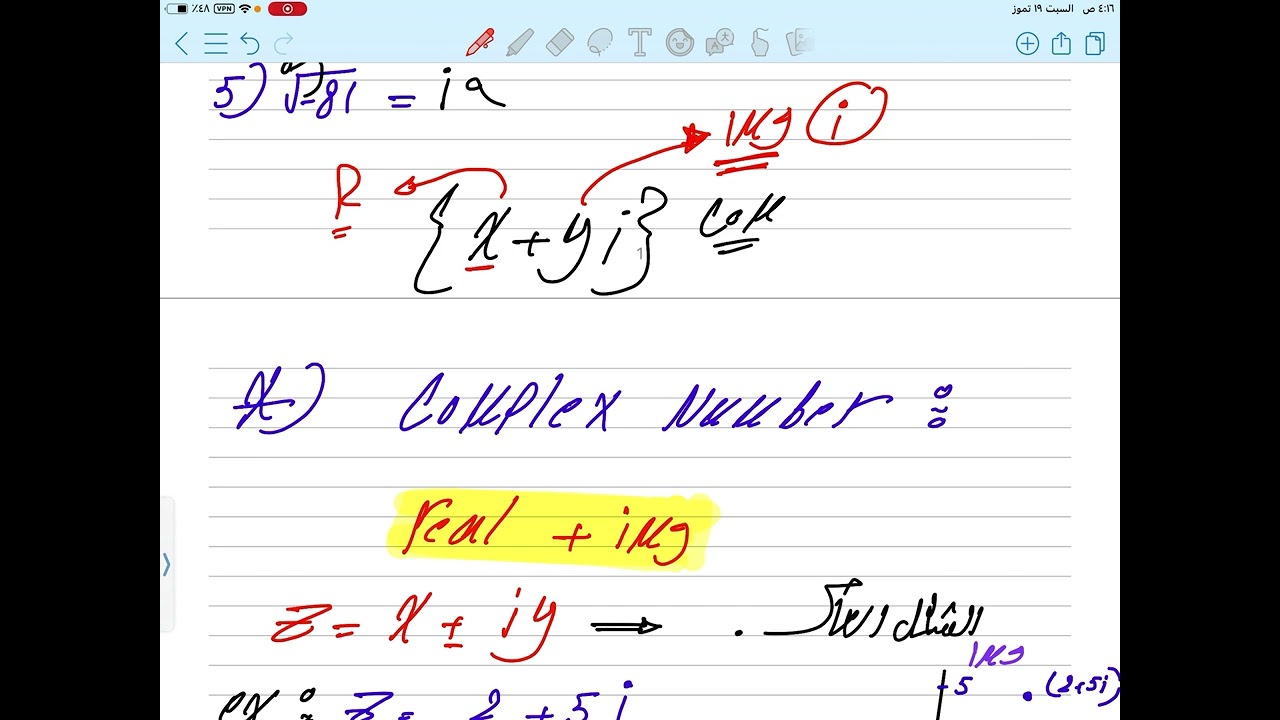 ٤:١٦ ص السبت ١٩ تموز
٤٨٪ VPN
5) √-81 = i9
img i
R
{x + yi} Com
1
*) Complex Number :
real + img
Z = x ± iy ⟹ . الشكل العام
img
5 (2+5i)
ex : Z = 2 + 5i